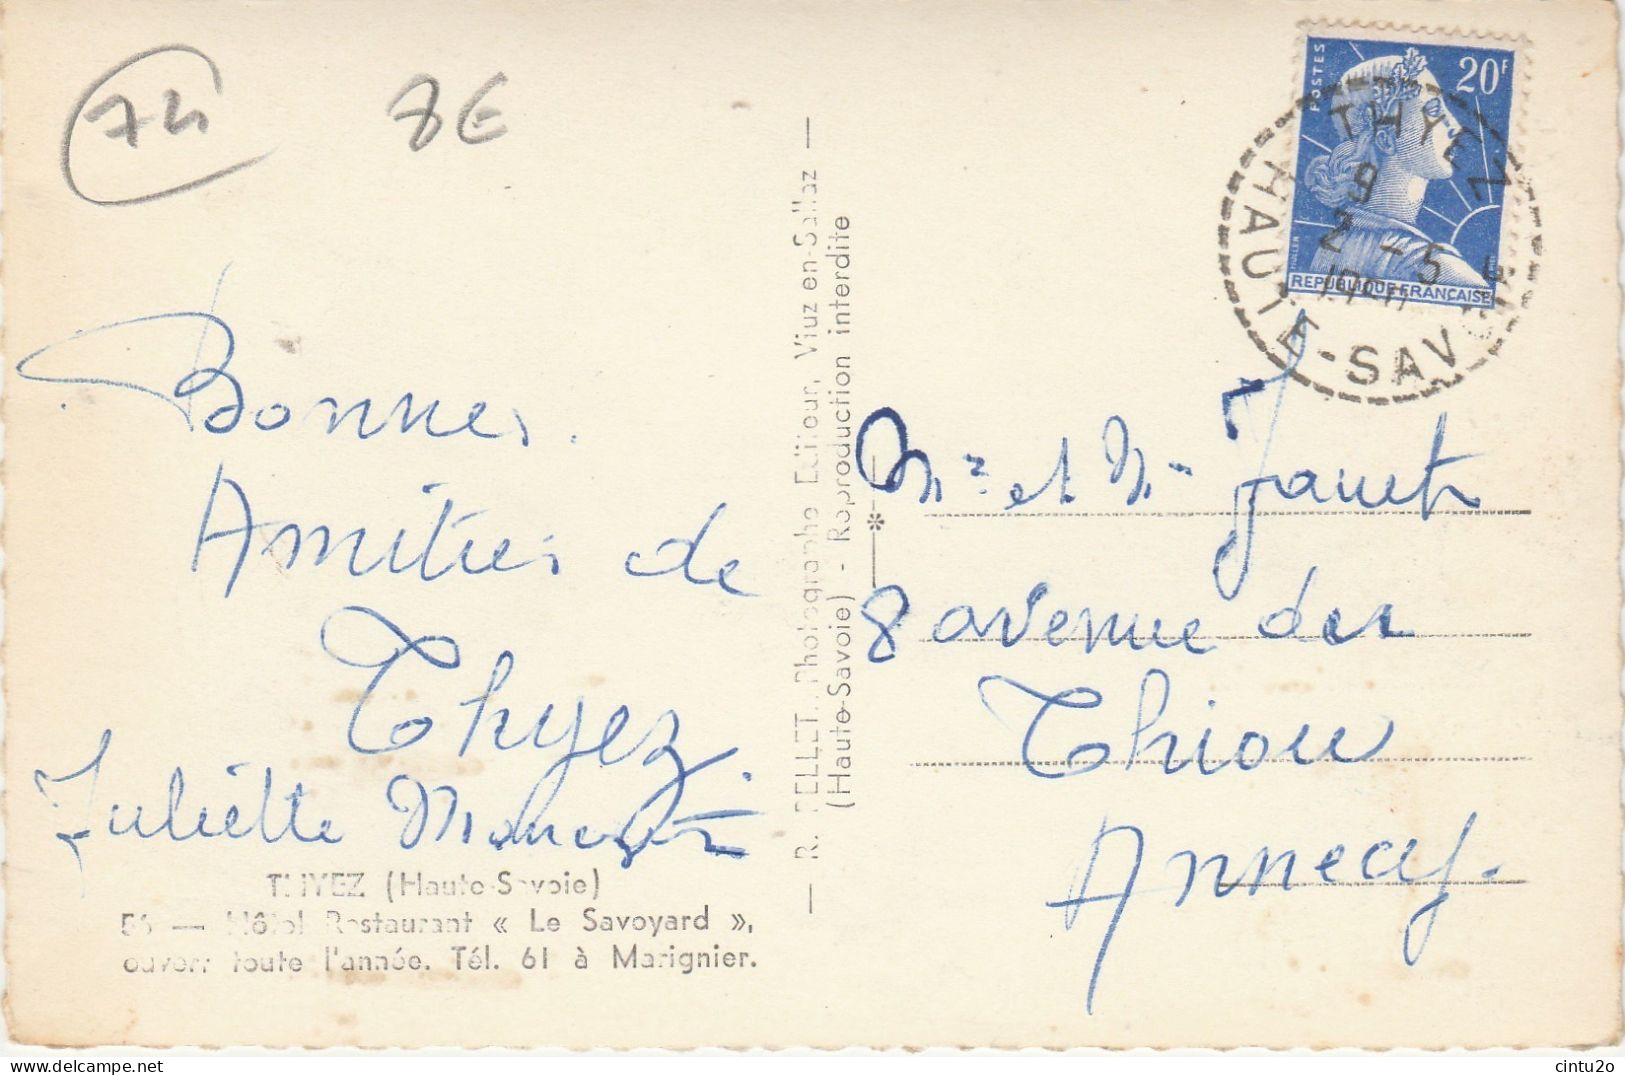 74 8€
POSTES
20F
MULLER
REPUBLIQUE FRANÇAISE
THYEZ
9
2 - 5
HAUTE-SAVOIE
Bonnes
Amitiés de
Thyez.
Juliette
THYEZ (Haute-Savoie)
56 — Hôtel Restaurant « Le Savoyard »,
ouvert toute l'année. Tél. 61 à Marignier.
— R. PELLET, Photographe Editeur, Viuz-en-Sallaz —
(Haute-Savoie) - Reproduction interdite
Mr et Mme
8 avenue des
Thiou
Annecy.
cintu2o